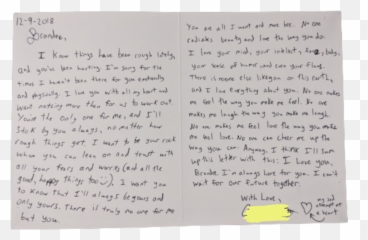 12-9-2018
Brandon,
I know things have been rough lately,
and you've been hurting. I'm sorry for the
times I haven't been there for you emotionally
and physically. I love you with all my heart and
want nothing more than for us to work out.
You're the only one for me, and I'll
stick by you always, no matter how
rough things get. I want to be your rock
whom you can lean on and trust with
all your fears and worries (and all the
good, happy things too). I want you
to know that I'll always be yours and
only yours. There is truly no one for me
but you.
You are all I want and more. No one
radiates beauty and love the way you do.
I love your mind, your intellect, body,
your sense of humor and even your flaws.
There is no one else like you on this earth,
and I love everything about you. No one makes
me feel the way you make me feel. No one
makes me laugh the way you make me laugh.
No one makes me feel love the way you make
me feel love. No one can cheer me up the
way you can. Anyway, I think I'll sum
up this letter with this: I love you,
Brandon. I'm always here for you. I can't
wait for our future together.
With Love,
my sad
attempt at
a heart